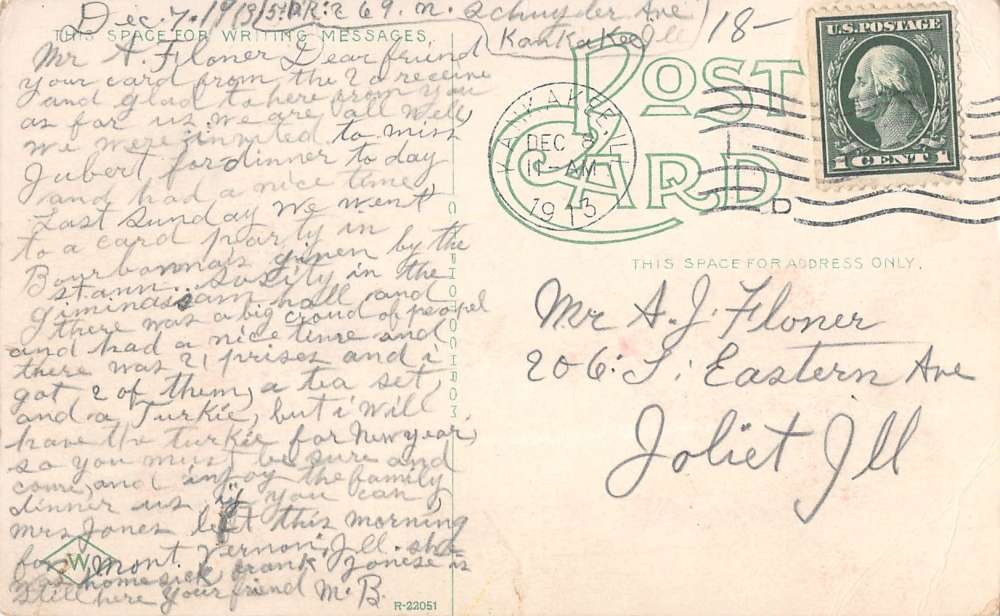 Dec. 7. 1913
269. N. Schuyler Ave
KanKaKee Ill
18-
THIS SPACE FOR WRITING MESSAGES.
Mr A. Floner Dear friend
your card from the 2 o receive
and glad to here from you
as for us we are all well
we were invited to miss
Jubert for dinner to day
and had a nice time
Last Sunday we went
to a card pearty in
Bourbonnais given by the
st ann. sosity in the
giminassam hall and
there was a big croud of peopel
and had a nice time and
there was 21 prises and i
got 2 of them, a tea set,
and a Turkie, but i will
have the turkie for New year,
so you must be sure and
come, and injoy the family
dinner us if you can,
mrs Jones left this morning
for Mont. Vernon, Ill. she
was home sick, frank Jonese is
still here your friend M. B.
W
R-22051
POST
CARD
KANKAKEE, ILL.
DEC 8
11-AM
1913
D
U.S. POSTAGE
1 CENT 1
THIS SPACE FOR ADDRESS ONLY.
Mr A. J. Floner
206: S: Eastern Ave
Joliet Ill